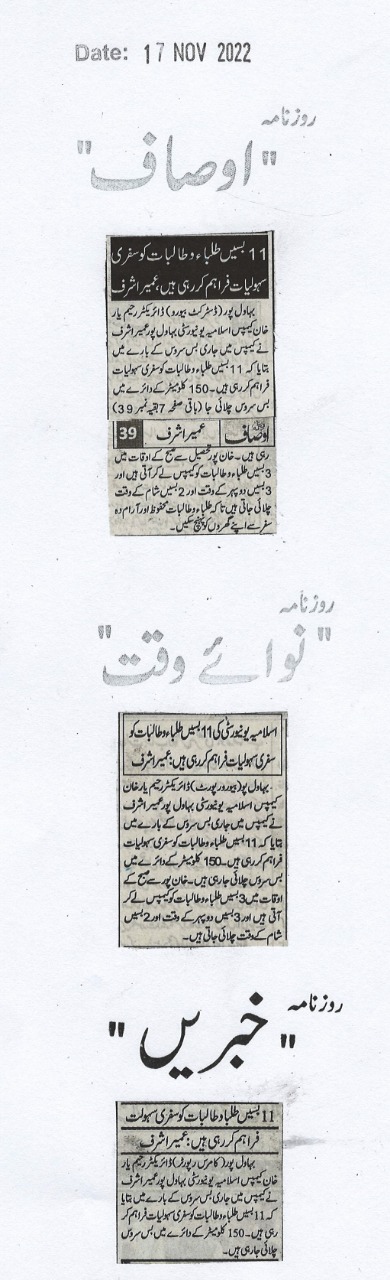 Date: 17 NOV 2022
روزنامہ
"اوصاف"
11 بسیں طلباء و طالبات کو سفری
سہولیات فراہم کر رہی ہیں، عمیر اشرف
بہاول پور (ڈسٹرکٹ بیورو) ڈائریکٹر رحیم یار
خان کیمپس اسلامیہ یونیورسٹی بہاول پور عمیر اشرف
نے کیمپس میں جاری بس سروس کے بارے میں
بتایا کہ 11 بسیں طلباء و طالبات کو سفری سہولیات
فراہم کر رہی ہیں۔ 150 کلومیٹر کے دائرے میں
بس سروس چلائی جا (باقی صفحہ 7 بقیہ نمبر 39)
اوصاف عمیر اشرف 39
رہی ہیں۔ خان پور تحصیل سے صبح کے اوقات میں
3 بسیں طلباء و طالبات کو کیمپس لے کر آتی ہیں اور
3 بسیں دوپہر کے وقت اور 2 بسیں شام کے وقت
چلائی جاتی ہیں تاکہ طلباء و طالبات محفوظ اور آرام دہ
سفر سے اپنے گھروں کو پہنچ سکیں۔
روزنامہ
"نوائے وقت"
اسلامیہ یونیورسٹی کی 11 بسیں طلباء و طالبات کو
سفری سہولیات فراہم کر رہی ہیں: عمیر اشرف
بہاول پور (بیورو رپورٹ) ڈائریکٹر رحیم یار خان
کیمپس اسلامیہ یونیورسٹی بہاول پور عمیر اشرف
نے کیمپس میں جاری بس سروس کے بارے میں
بتایا کہ 11 بسیں طلباء و طالبات کو سفری سہولیات
فراہم کر رہی ہیں۔ 150 کلومیٹر کے دائرے میں
بس سروس چلائی جا رہی ہیں۔ خان پور سے صبح کے
اوقات میں 3 بسیں طلباء و طالبات کو کیمپس لے کر
آتی ہیں اور 3 بسیں دوپہر کے وقت اور 2 بسیں
شام کے وقت چلائی جاتی ہیں۔
روزنامہ
"خبریں"
11 بسیں طلبا و طالبات کو سفری سہولت
فراہم کر رہی ہیں: عمیر اشرف
بہاول پور (کامرس رپورٹر) ڈائریکٹر رحیم یار
خان کیمپس اسلامیہ یونیورسٹی بہاول پور عمیر اشرف
نے کیمپس میں جاری بس سروس کے بارے میں بتایا
کہ 11 بسیں طلباء و طالبات کو سفری سہولیات فراہم کر
رہی ہیں۔ 150 کلومیٹر کے دائرے میں بس سروس
چلائی جا رہی ہیں۔